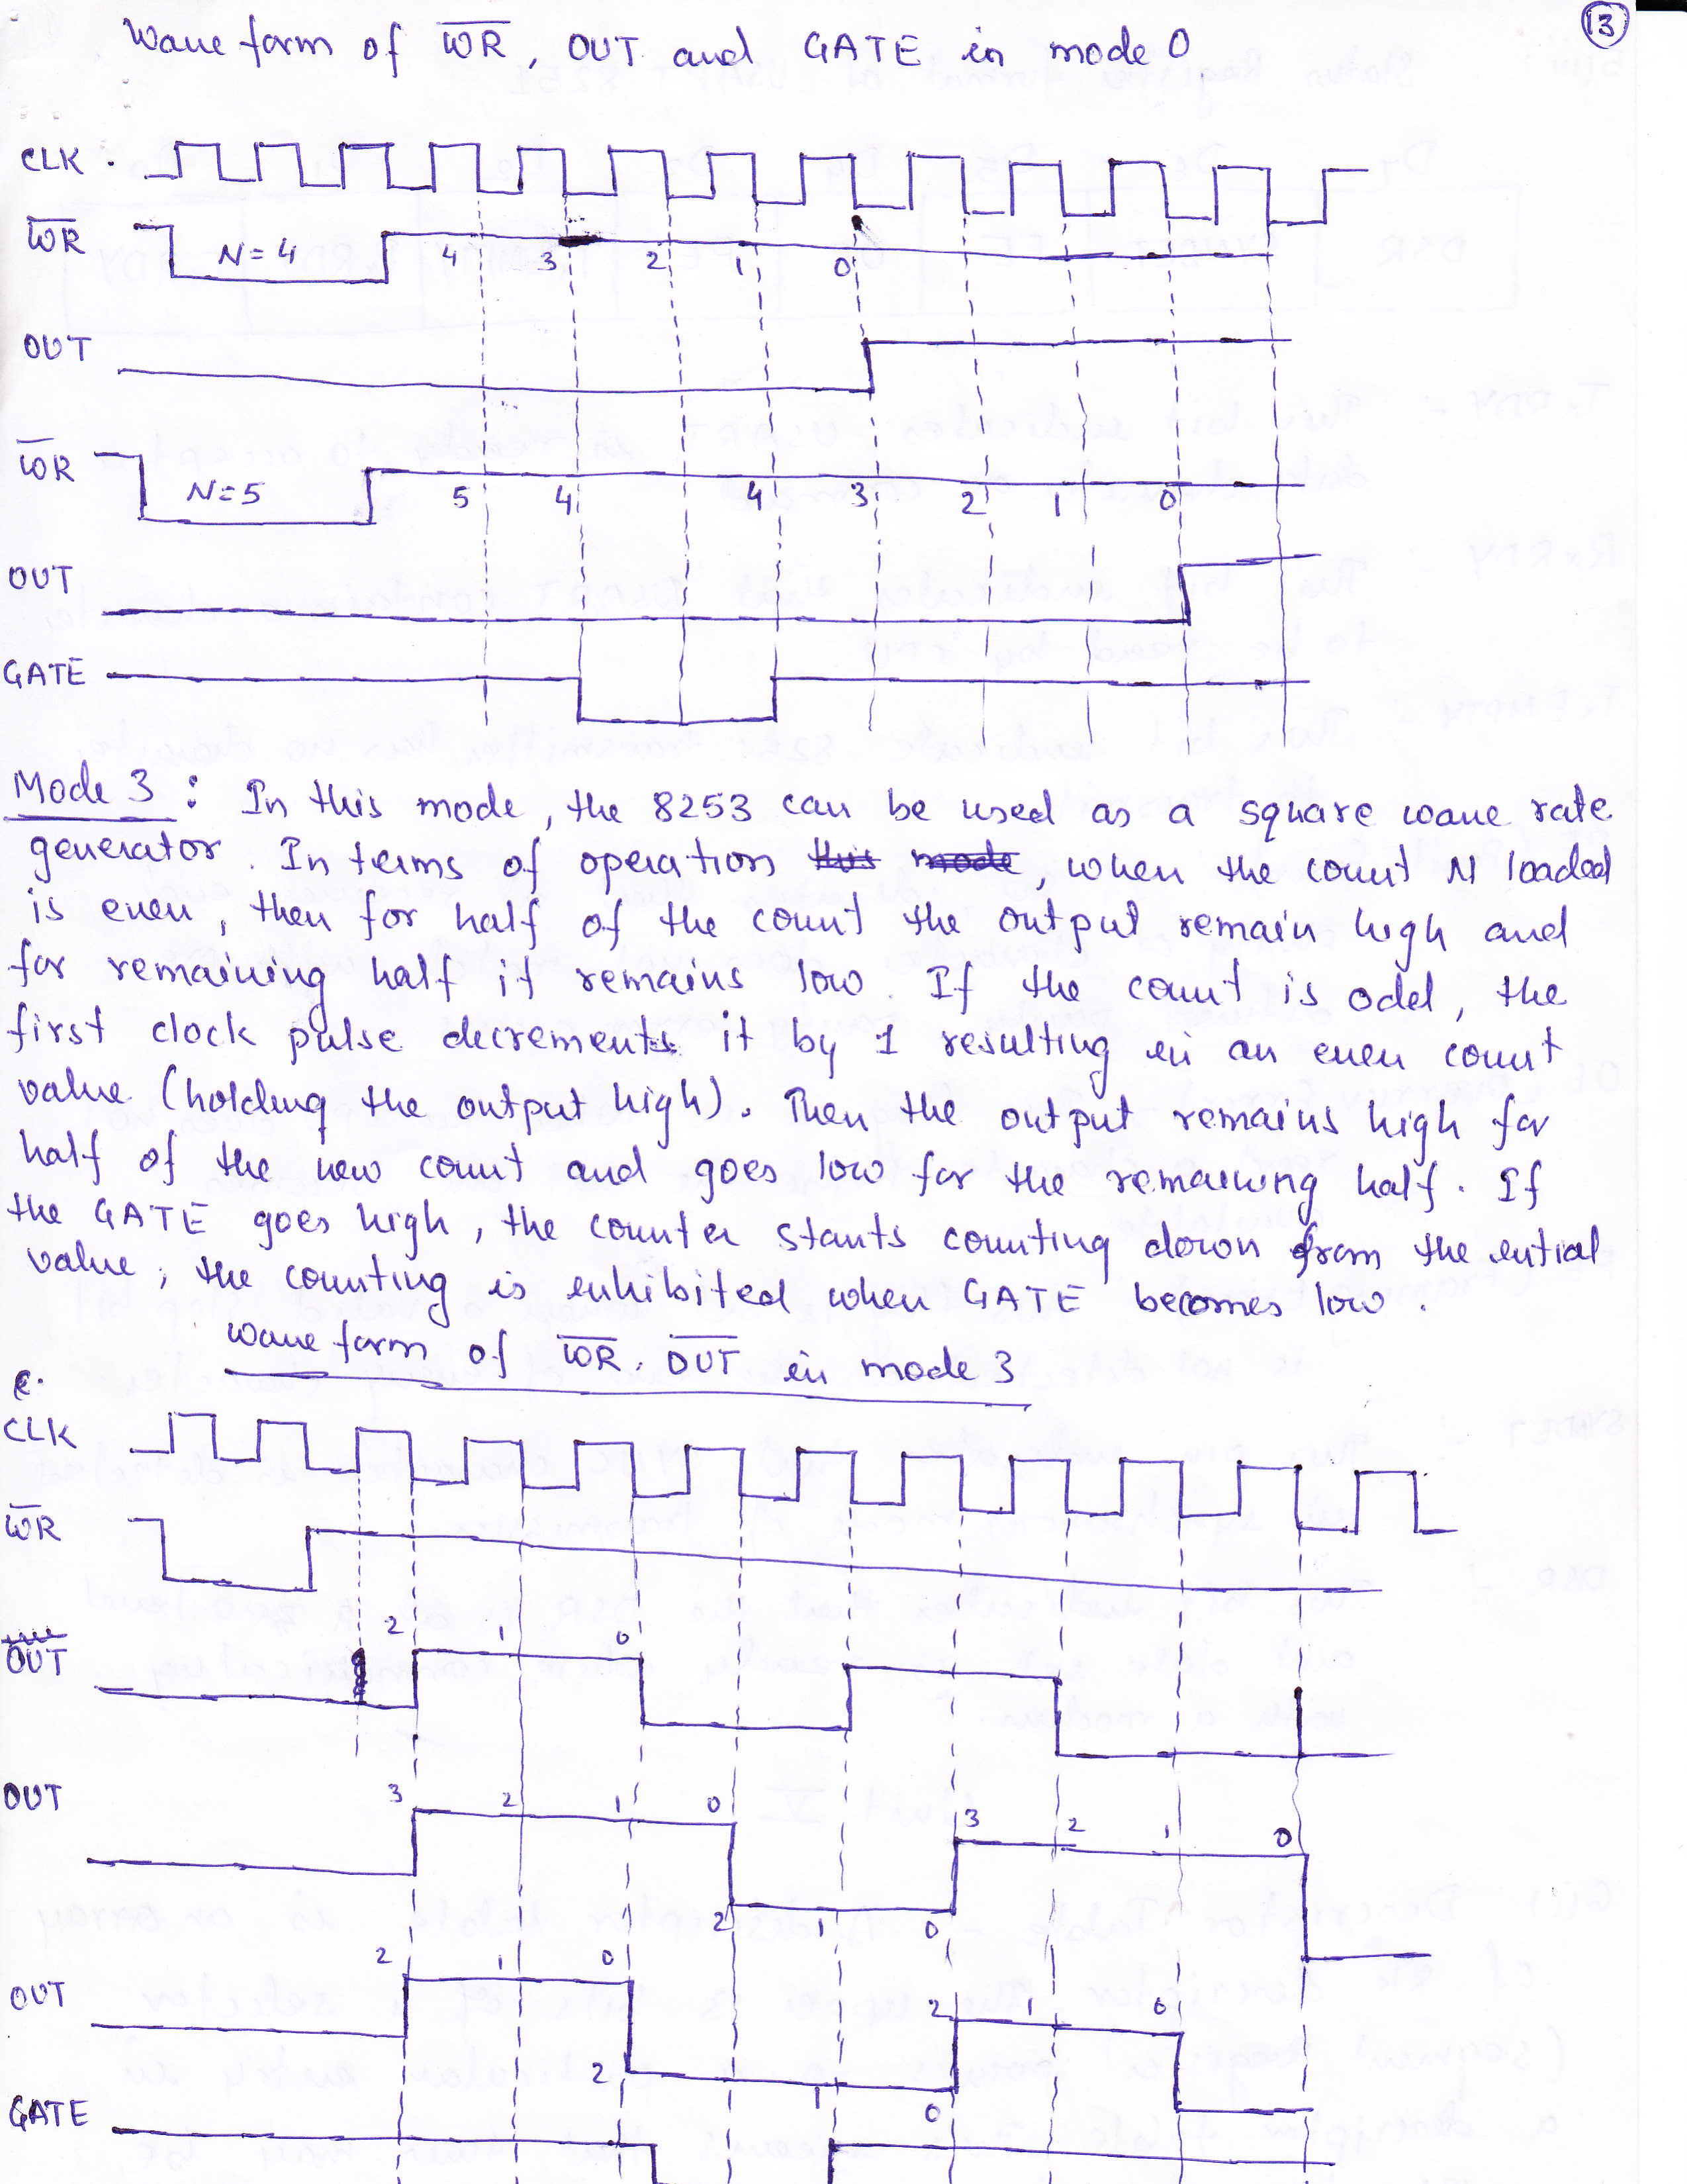 13
Wave form of WR, OUT and GATE in mode 0
CLK
WR N=4 4 3 2 1 0
OUT
WR N=5 5 4 4 3 2 1 0
OUT
GATE
Mode 3 : In this mode, the 8253 can be used as a square wave rate
generator. In terms of operation this mode, when the count N loaded
is even, then for half of the count the output remain high and
for remaining half it remains low. If the count is odd, the
first clock pulse decrements it by 1 resulting in an even count
value (holding the output high). Then the output remains high for
half of the new count and goes low for the remaining half. If
the GATE goes high, the counter starts counting down from the intial
value, the counting is inhibited when GATE becomes low.
Wave form of WR, OUT in mode 3
CLK
WR
2 1 0
OUT
OUT 3 2 1 0 3 2 1 0
2 1 0
2 1 0 2 1 0
OUT
2 1 0
GATE